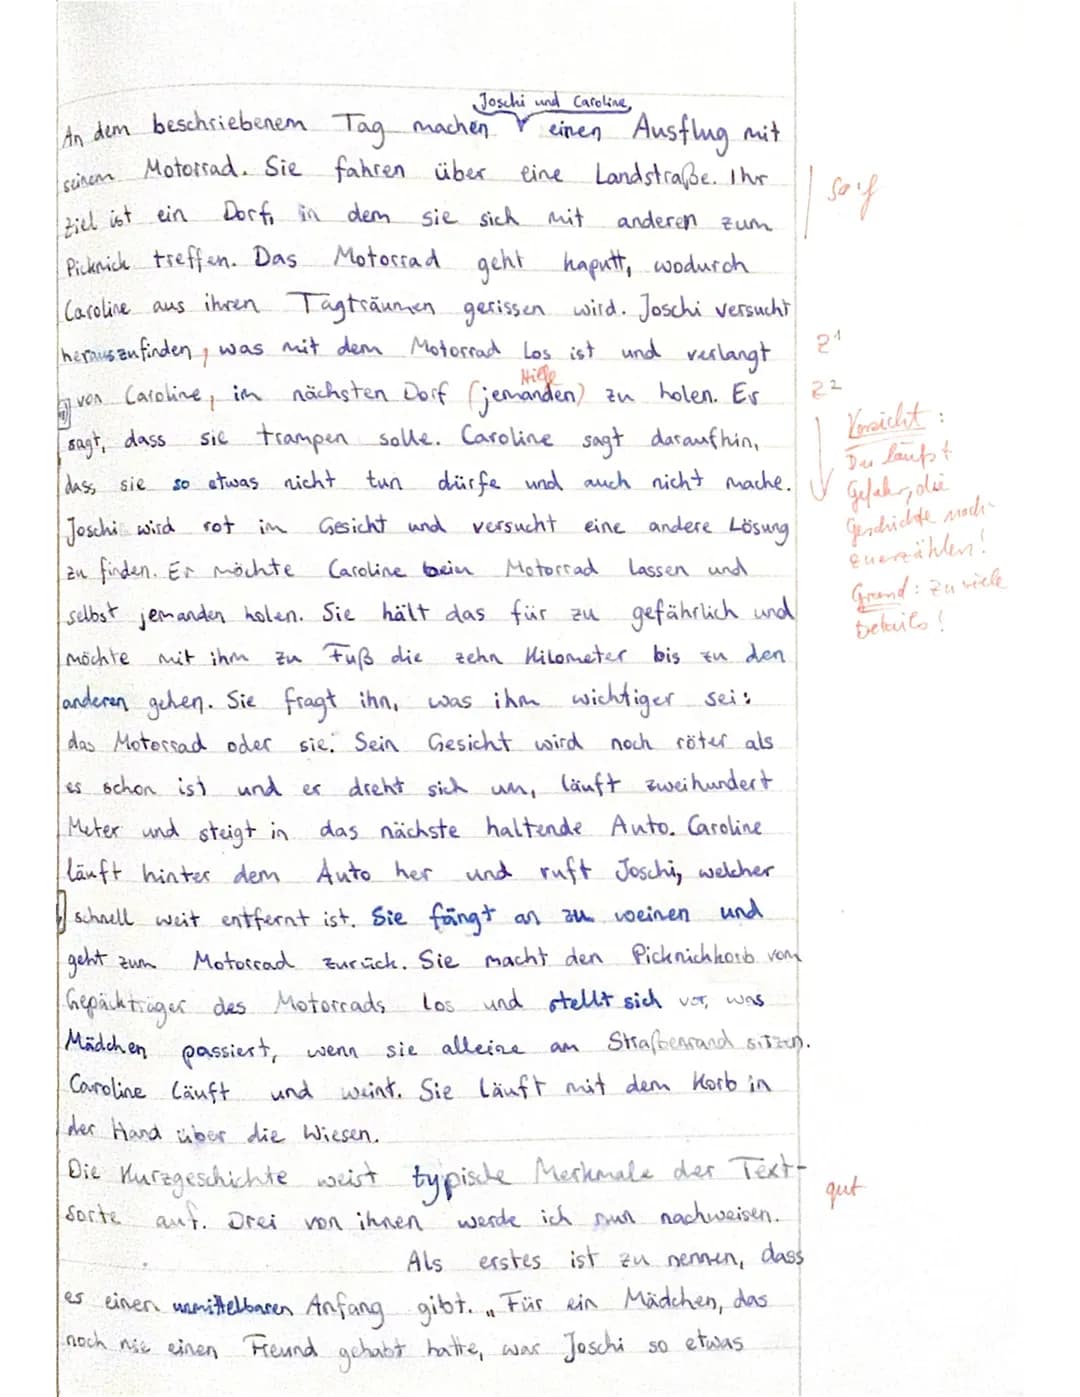 Joschi und Caroline
An dem beschriebenem Tag machen einen Ausflug mit
seinem Motorrad. Sie fahren über eine Landstraße. Ihr
Ziel ist ein Dorf, in dem sie sich mit anderen zum
Picknick treffen. Das Motorrad geht kaputt, wodurch
Caroline aus ihren Tagträumen gerissen wird. Joschi versucht
herauszufinden, was mit dem Motorrad los ist und verlangt
Z1
Hilfe
von Caroline, im nächsten Dorf (jemanden) zu holen. Er
Z2
sagt, dass sie trampen solle. Caroline sagt daraufhin,
dass sie so etwas nicht tun dürfe und auch nicht mache.
Vorsicht:
Du läufst
Gefahr, die
Geschichte nach-
zuerzählen!
Grund: zu viele
Details!
Joschi wird rot im Gesicht und versucht eine andere Lösung
zu finden. Er möchte Caroline beim Motorrad lassen und
selbst jemanden holen. Sie hält das für zu gefährlich und
möchte mit ihm zu Fuß die zehn Kilometer bis zu den
anderen gehen. Sie fragt ihn, was ihm wichtiger sei:
das Motorrad oder sie. Sein Gesicht wird noch röter als
es schon ist und er dreht sich um, läuft zweihundert
Meter und steigt in das nächste haltende Auto. Caroline
läuft hinter dem Auto her und ruft Joschi, welcher
schnell weit entfernt ist. Sie fängt an zu weinen und
geht zum Motorrad zurück. Sie macht den Picknickkorb vom
Gepäckträger des Motorrads los und stellt sich vor, was
Mädchen passiert, wenn sie alleine am Straßenrand sitzen.
Caroline läuft und weint. Sie läuft mit dem Korb in
der Hand über die Wiesen.
Die Kurzgeschichte weist typische Merkmale der Text-
sorte auf. Drei von ihnen werde ich nun nachweisen.
gut
Als erstes ist zu nennen, dass
es einen unmittelbaren Anfang gibt. „Für ein Mädchen, das
noch nie einen Freund gehabt hatte, war Joschi so etwas